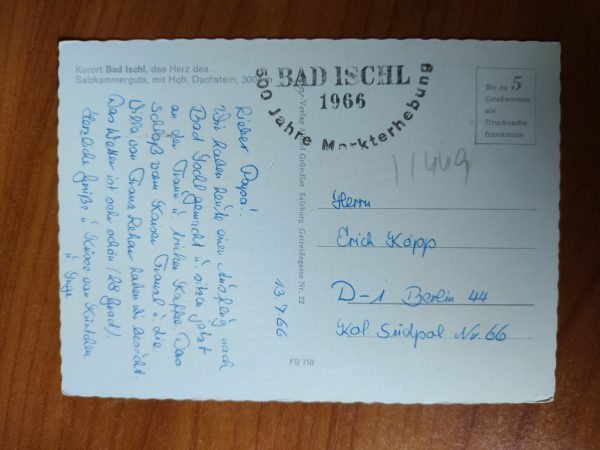 Kurort Bad Ischl, das Herz des
Salzkammerguts, mit Hoh. Dachstein, 300
600 Jahre Markterhebung
BAD ISCHL
1966
Bis zu 5
Grußworten
als
Drucksache
frankieren
11449
Lieber Papa!
Wir haben heute einen Ausflug nach
Bad Ischl gemacht u. sitzen jetzt
an der Traun u. trinken Kaffee. Das
Schloß vom Kaiser Franzel u. die
Villa von Franz Lehar haben wir besicht.
Das Wetter ist sehr schön (28 Grad).
Herzliche Grüße u. Küsse von
u. Inge
13.7.66
Verlag Gründler Salzburg Getreidegasse Nr. 22
FS 718
Herrn
Erich Kopp
D-1 Berlin 44
Kol. Südpol Nr. 66